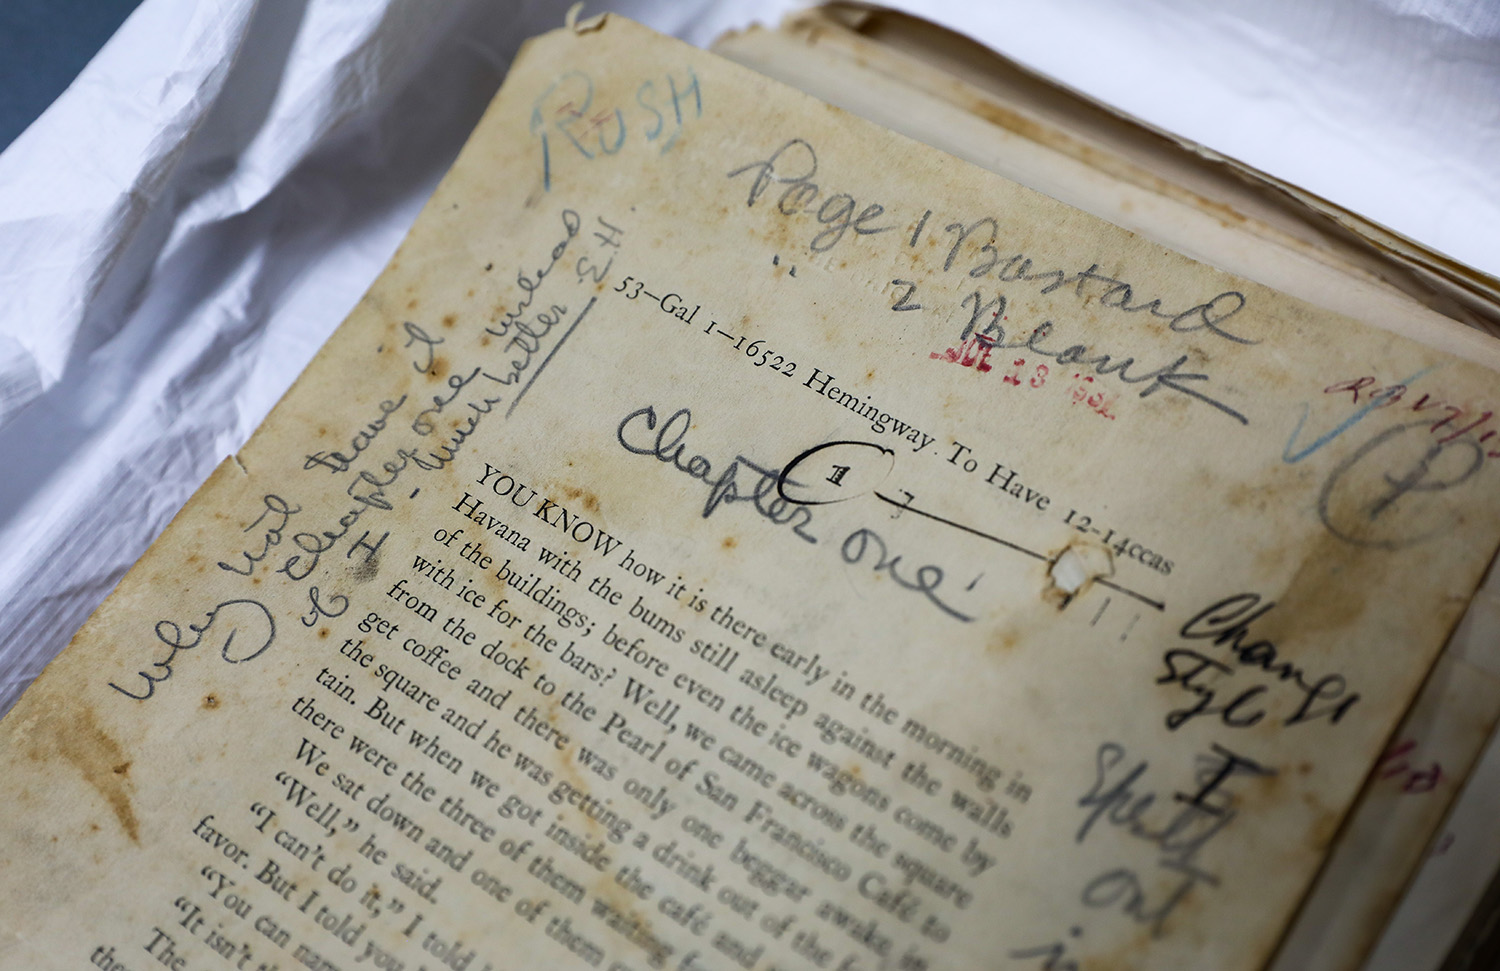 RUSH
Page 1 Bastard
" 2 Blank
JUL 13
53—Gal 1—16522 Hemingway. To Have 12-14ccas
1
Chapter One
Why not have I
Chapter One instead
much better
E H
Change
Style
I
Spell
out
YOU KNOW how it is there early in the morning in
Havana with the bums still asleep against the walls
of the buildings; before even the ice wagons come by
with ice for the bars? Well, we came across the square
from the dock to the Pearl of San Francisco Café to
get coffee and there was only one beggar awake in
the square and he was getting a drink out of the
tain. But when we got inside the café and
there were the three of them waiting
We sat down and one of them
“Well,” he said.
“I can’t do it,” I told
favor. But I told you
“You can
“It isn’t
The